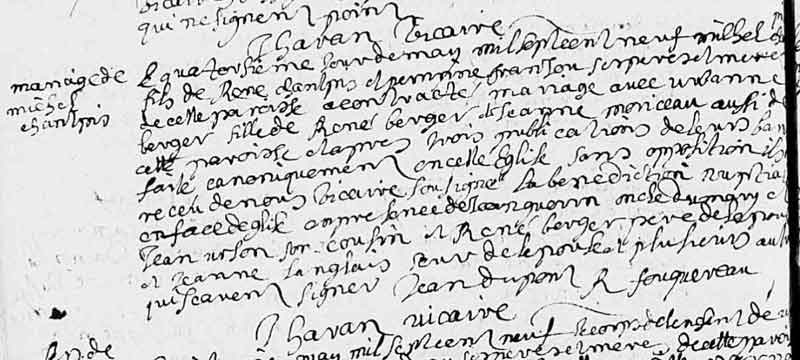 qui ne signent point
Thavan vicaire
mariage de
michel
chanlois
Le quatorsieme jour de may mil sept cent neuf michel
fils de René chanlois et perrinne ses pere et mere
de cette paroisse a contracté mariage avec urbanne
berger fille de René berger et Jeanne moriceau aussi de
cette paroisse et apres trois publications de leurs ban
faite canoniquement en cette Eglise sans opposition ils
receu de nous vicaire soussigné la benediction nuptia
en face deglise en presence de Jean guerin oncle du mary et
Jean urson son cousin et René berger pere de lepous
et Jeanne langlais seur de lepouse et plusieurs aut
qui scavent signer Jean dupont R fouquereau
Thavan vicaire
may mil sept cent neuf le corps de lenfent de
pere et mere de cette paroi